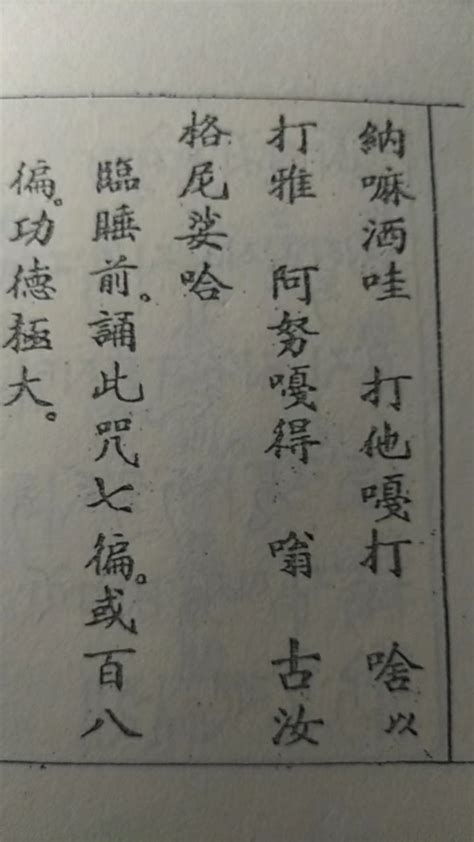 納嘛洒哇 打他嘎打 啥以
打雅 阿努嘎得 嗡 古汝
格尼娑哈
臨睡前。誦此咒七徧。或百八
徧。功德極大。